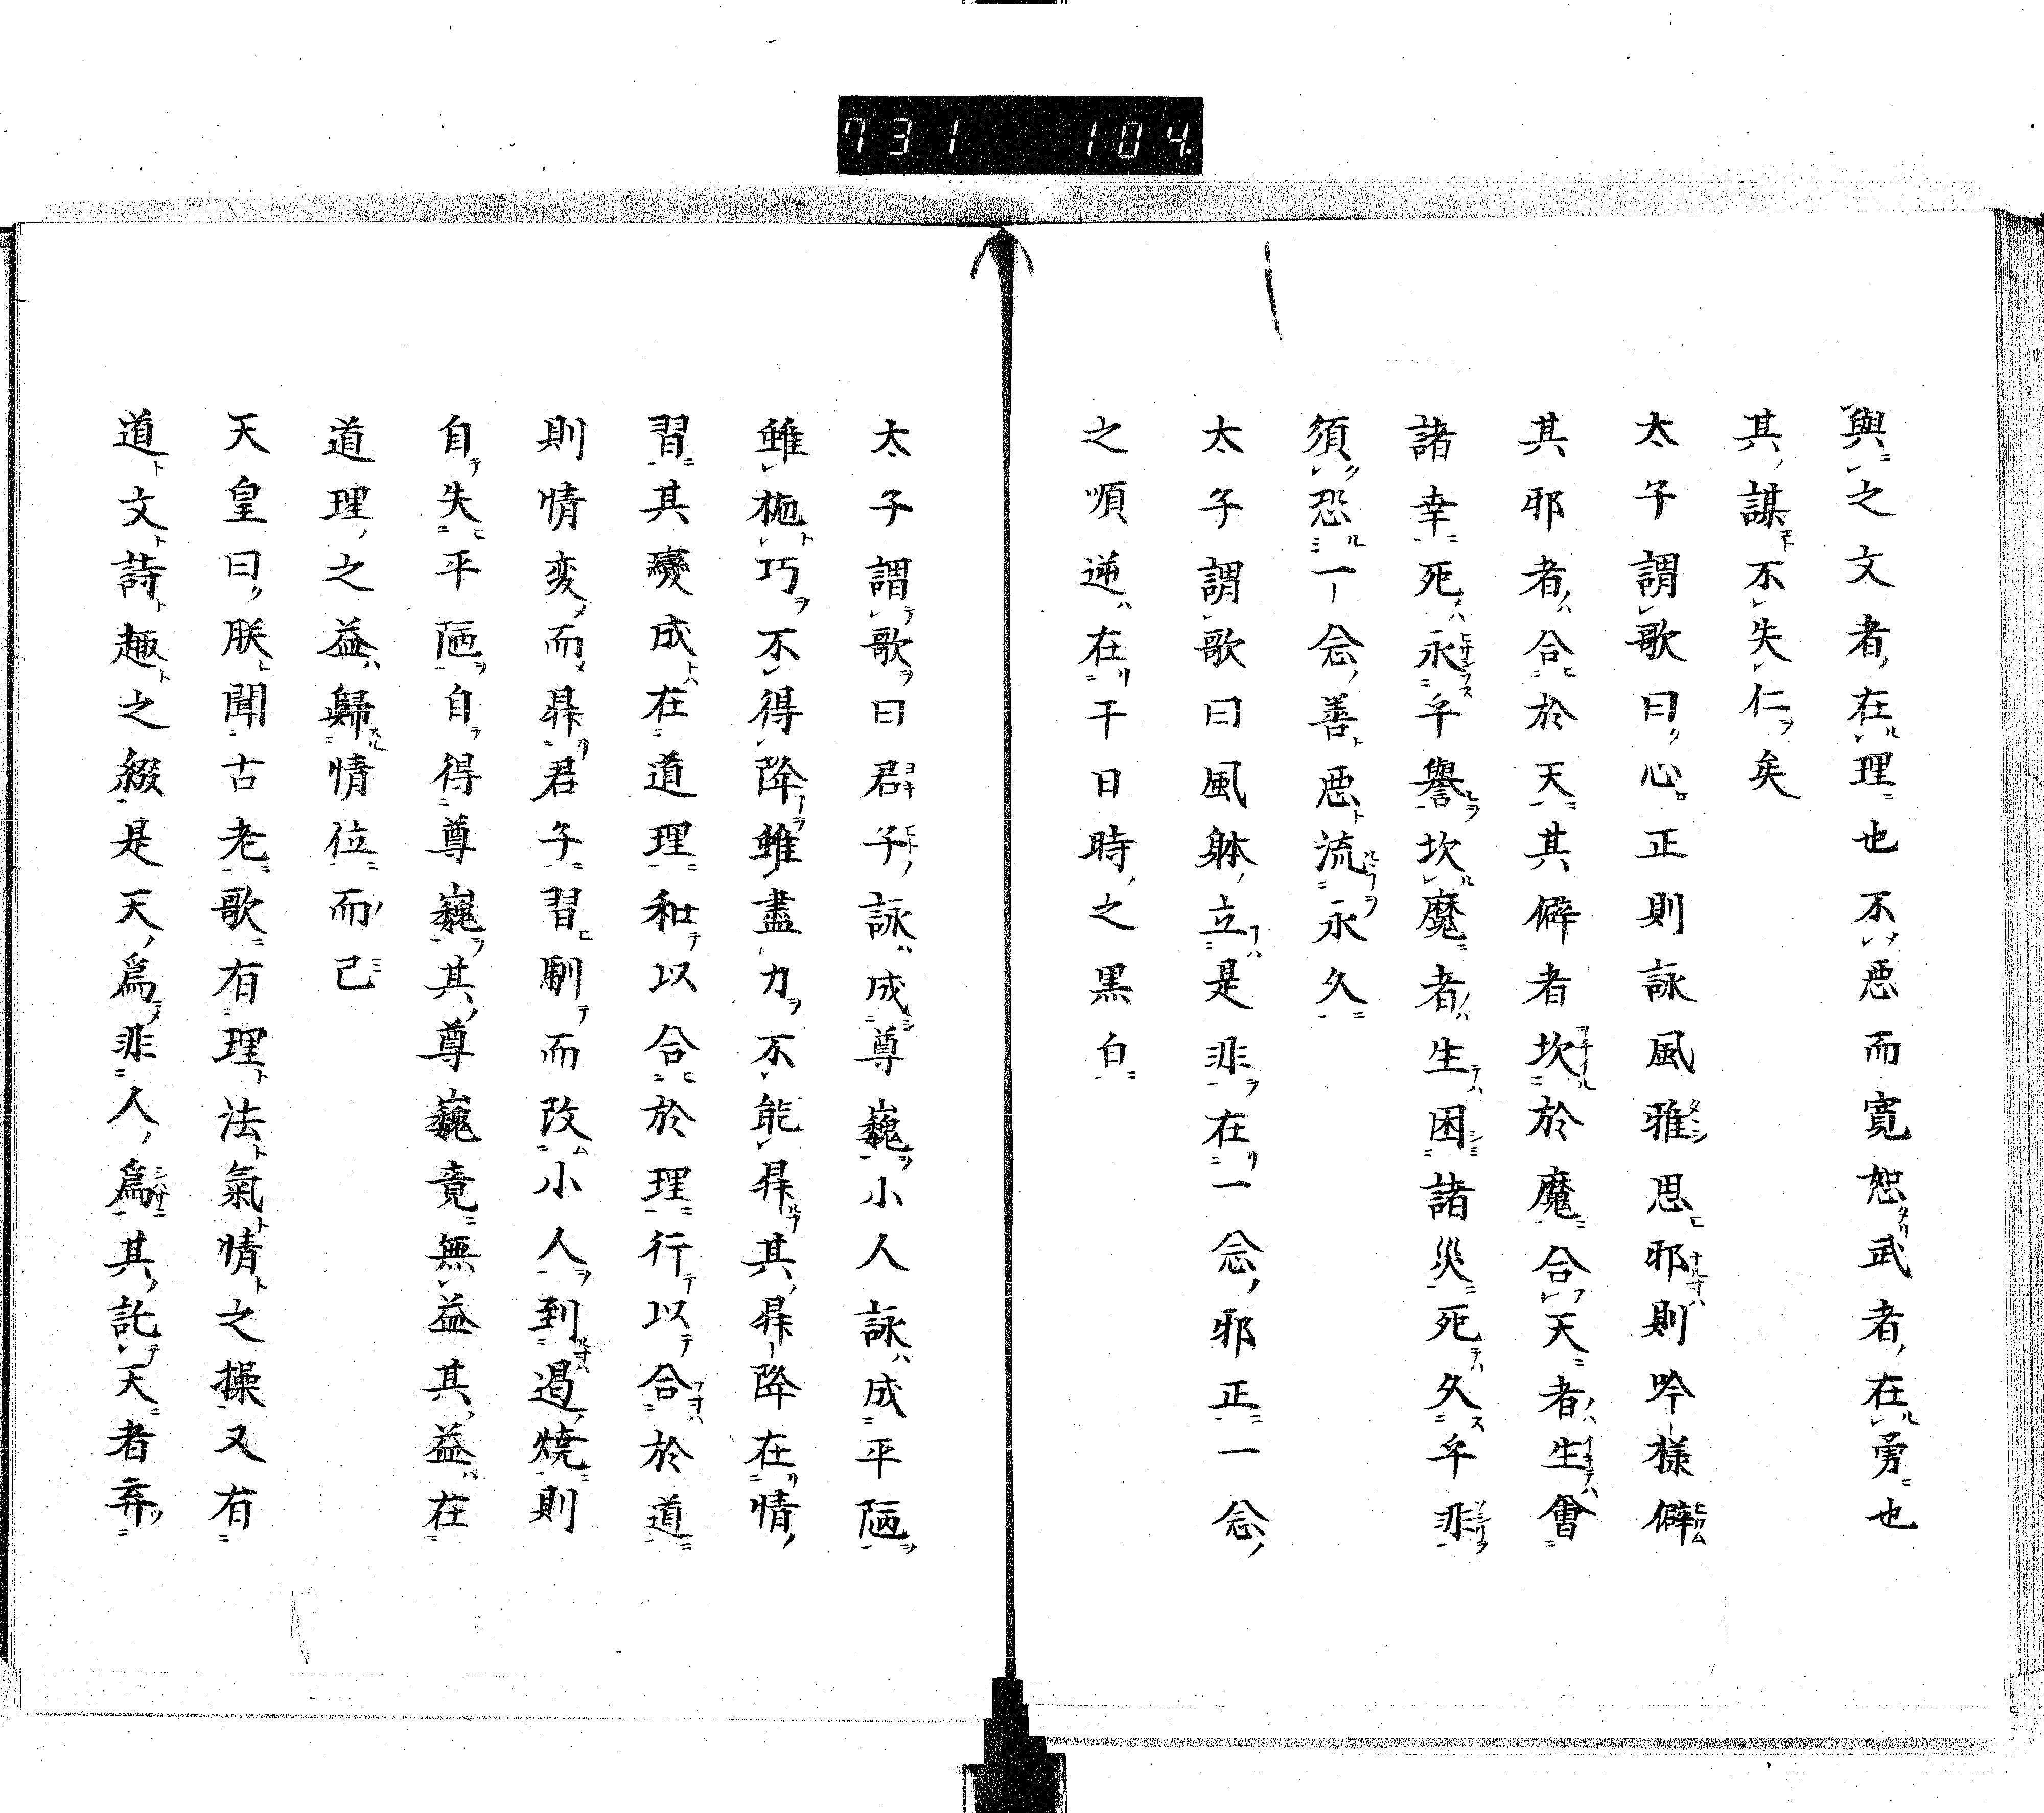 731 104
與之文者在理也不惡而寛恕武者在勇也
其謀不失仁矣
太子謂歌曰心正則詠風雅思邪則吟様僻
其邪者合於天其僻者坎於魔合天者生會
諸幸死永乎譽坎魔者生困諸災死久乎非
須恐一念善惡流永久
太子謂歌曰風躰立是非在一念邪正一念
之順逆在干日時之黒白
太子謂歌曰君子詠成尊巍小人詠成平陋
雖施巧不得降雖盡力不能昇其昇降在情
習其變成在道理和以合於理行以合於道
則情変而昇君子習馴而改小人到過燒則
自失平陋自得尊巍其尊巍竟無益其益在
道理之益歸情位而己
天皇曰朕聞古老歌有理法氣情之操又有
道文詩趣之綴是天爲非人爲其託天者弃